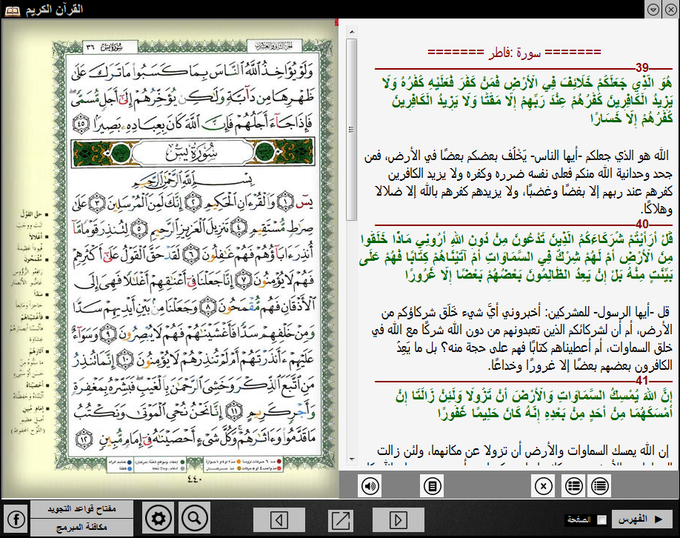 القرآن الكريم
سورة يس ٣٦
الجزء الثاني والعشرون
وَلَوْ يُؤَاخِذُ اللَّهُ النَّاسَ بِمَا كَسَبُوا مَا تَرَكَ عَلَىٰ
ظَهْرِهَا مِن دَابَّةٍ وَلَٰكِن يُؤَخِّرُهُمْ إِلَىٰ أَجَلٍ مُّسَمًّى
فَإِذَا جَاءَ أَجَلُهُمْ فَإِنَّ اللَّهَ كَانَ بِعِبَادِهِ بَصِيرًا ٤٥
سُورَةُ يسٓ
بِسْمِ اللَّهِ الرَّحْمَٰنِ الرَّحِيمِ
يسٓ ١ وَالْقُرْآنِ الْحَكِيمِ ٢ إِنَّكَ لَمِنَ الْمُرْسَلِينَ ٣ عَلَىٰ
صِرَاطٍ مُّسْتَقِيمٍ ٤ تَنزِيلَ الْعَزِيزِ الرَّحِيمِ ٥ لِتُنذِرَ قَوْمًا مَّا
أُنذِرَ آبَاؤُهُمْ فَهُمْ غَافِلُونَ ٦ لَقَدْ حَقَّ الْقَوْلُ عَلَىٰ أَكْثَرِهِمْ
فَهُمْ لَا يُؤْمِنُونَ ٧ إِنَّا جَعَلْنَا فِي أَعْنَاقِهِمْ أَغْلَالًا فَهِيَ إِلَى
الْأَذْقَانِ فَهُم مُّقْمَحُونَ ٨ وَجَعَلْنَا مِن بَيْنِ أَيْدِيهِمْ سَدًّا
وَمِنْ خَلْفِهِمْ سَدًّا فَأَغْشَيْنَاهُمْ فَهُمْ لَا يُبْصِرُونَ ٩ وَسَوَاءٌ
عَلَيْهِمْ أَأَنذَرْتَهُمْ أَمْ لَمْ تُنذِرْهُمْ لَا يُؤْمِنُونَ ١٠ إِنَّمَا تُنذِرُ
مَنِ اتَّبَعَ الذِّكْرَ وَخَشِيَ الرَّحْمَٰنَ بِالْغَيْبِ فَبَشِّرْهُ بِمَغْفِرَةٍ
وَأَجْرٍ كَرِيمٍ ١١ إِنَّا نَحْنُ نُحْيِي الْمَوْتَىٰ وَنَكْتُبُ
مَا قَدَّمُوا وَآثَارَهُمْ وَكُلَّ شَيْءٍ أَحْصَيْنَاهُ فِي إِمَامٍ مُّبِينٍ ١٢
٤٤٠
======= سورة :فاطر =======
39
هُوَ الَّذِي جَعَلَكُمْ خَلَائِفَ فِي الْأَرْضِ فَمَنْ كَفَرَ فَعَلَيْهِ كُفْرُهُ وَلَا
يَزِيدُ الْكَافِرِينَ كُفْرُهُمْ عِنْدَ رَبِّهِمْ إِلَّا مَقْتًا وَلَا يَزِيدُ الْكَافِرِينَ
كُفْرُهُمْ إِلَّا خَسَارًا
الله هو الذي جعلكم -أيها الناس- يَخْلُف بعضكم بعضًا في الأرض، فمن
جحد وحدانية الله منكم فعلى نفسه ضرره وكفره ولا يزيد الكافرين
كفرهم عند ربهم إلا بغضًا وغضبًا، ولا يزيدهم كفرهم بالله إلا ضلالا
وهلاكًا.
40
قُلْ أَرَأَيْتُمْ شُرَكَاءَكُمُ الَّذِينَ تَدْعُونَ مِنْ دُونِ اللَّهِ أَرُونِي مَاذَا خَلَقُوا
مِنَ الْأَرْضِ أَمْ لَهُمْ شِرْكٌ فِي السَّمَاوَاتِ أَمْ آتَيْنَاهُمْ كِتَابًا فَهُمْ عَلَى
بَيِّنَتٍ مِنْهُ بَلْ إِنْ يَعِدُ الظَّالِمُونَ بَعْضُهُمْ بَعْضًا إِلَّا غُرُورًا
قل -أيها الرسول- للمشركين: أخبروني أيَّ شيء خَلَق شركاؤكم من
الأرض، أم أن لشركائكم الذين تعبدونهم من دون الله شركًا مع الله في
خلق السماوات، أم أعطيناهم كتابًا فهم على حجة منه؟ بل ما يَعِدُ
الكافرون بعضهم بعضًا إلا غرورًا وخداعًا.
41
إِنَّ اللَّهَ يُمْسِكُ السَّمَاوَاتِ وَالْأَرْضَ أَنْ تَزُولَا وَلَئِنْ زَالَتَا إِنْ
أَمْسَكَهُمَا مِنْ أَحَدٍ مِنْ بَعْدِهِ إِنَّهُ كَانَ حَلِيمًا غَفُورًا
إن الله يمسك السماوات والأرض أن تزولا عن مكانهما، ولئن زالت
مفتاح قواعد التجويد
مكافئة المبرمج
الصفحة
الفهرس